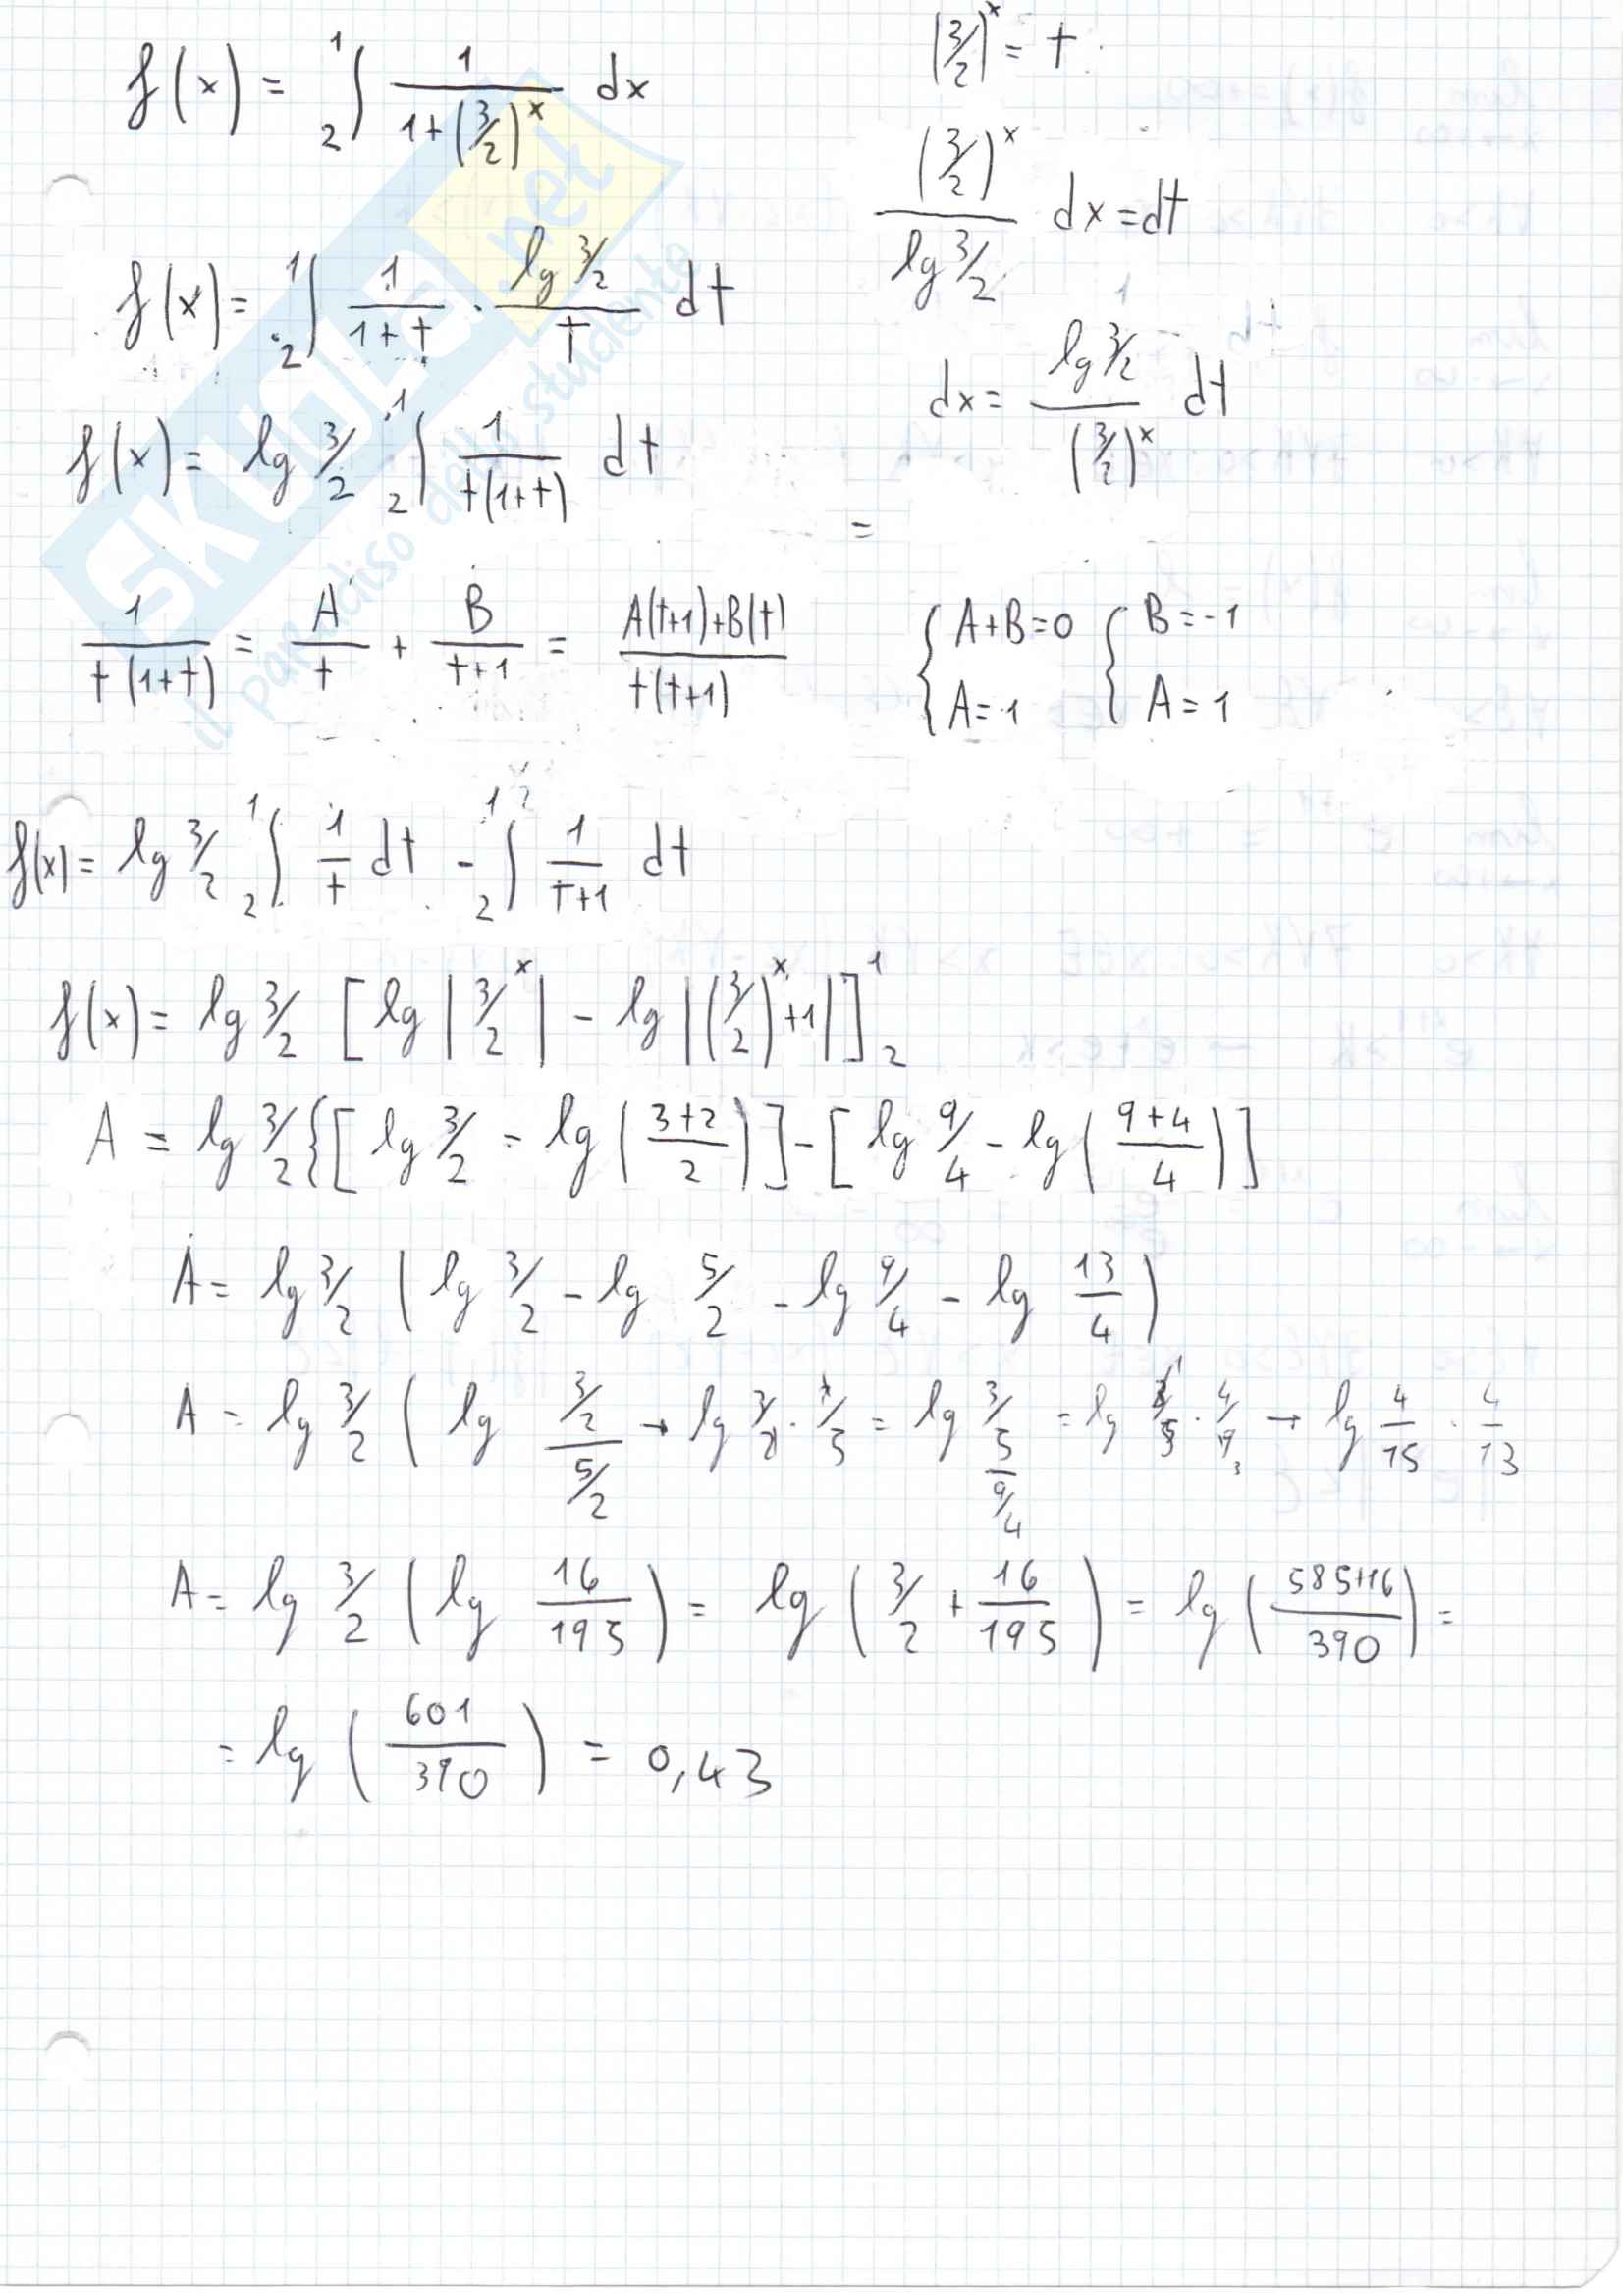 f(x) = 1∫2 1/(1+(3/2)^x) dx
(3/2)^x = t
(3/2)^x / lg 3/2 dx = dt
f(x) = 1∫2 1/(1+t) · lg 3/2 / t dt
dx = lg 3/2 / (3/2)^x dt
f(x) = lg 3/2 1∫2 1/(t(1+t)) dt
=
1/(t(1+t)) = A/t + B/(t+1) = (A(t+1)+B(t))/(t(t+1))
{A+B=0 {B=-1
{A=1 {A=1
f(x) = lg 3/2 1∫2 1/t dt - 1∫2 1/(t+1) dt
f(x) = lg 3/2 [lg |3/2^x| - lg |(3/2)^x+1|]^1_2
A = lg 3/2 {[lg 3/2 - lg ((3+2)/2)] - [lg 9/4 - lg ((9+4)/4)]
A = lg 3/2 (lg 3/2 - lg 5/2 - lg 9/4 - lg 13/4)
A = lg 3/2 (lg (3/2)/(5/2) → lg 3/2 · 2/5 = lg (3/5)/(9/4) = lg 3/5 · 4/9 → lg 4/15 · 4/13
A = lg 3/2 (lg 16/195) = lg (3/2 + 16/195) = lg ((585+16)/390) =
= lg (601/390) = 0,43
SKUOLA.net
il paradiso dello studente